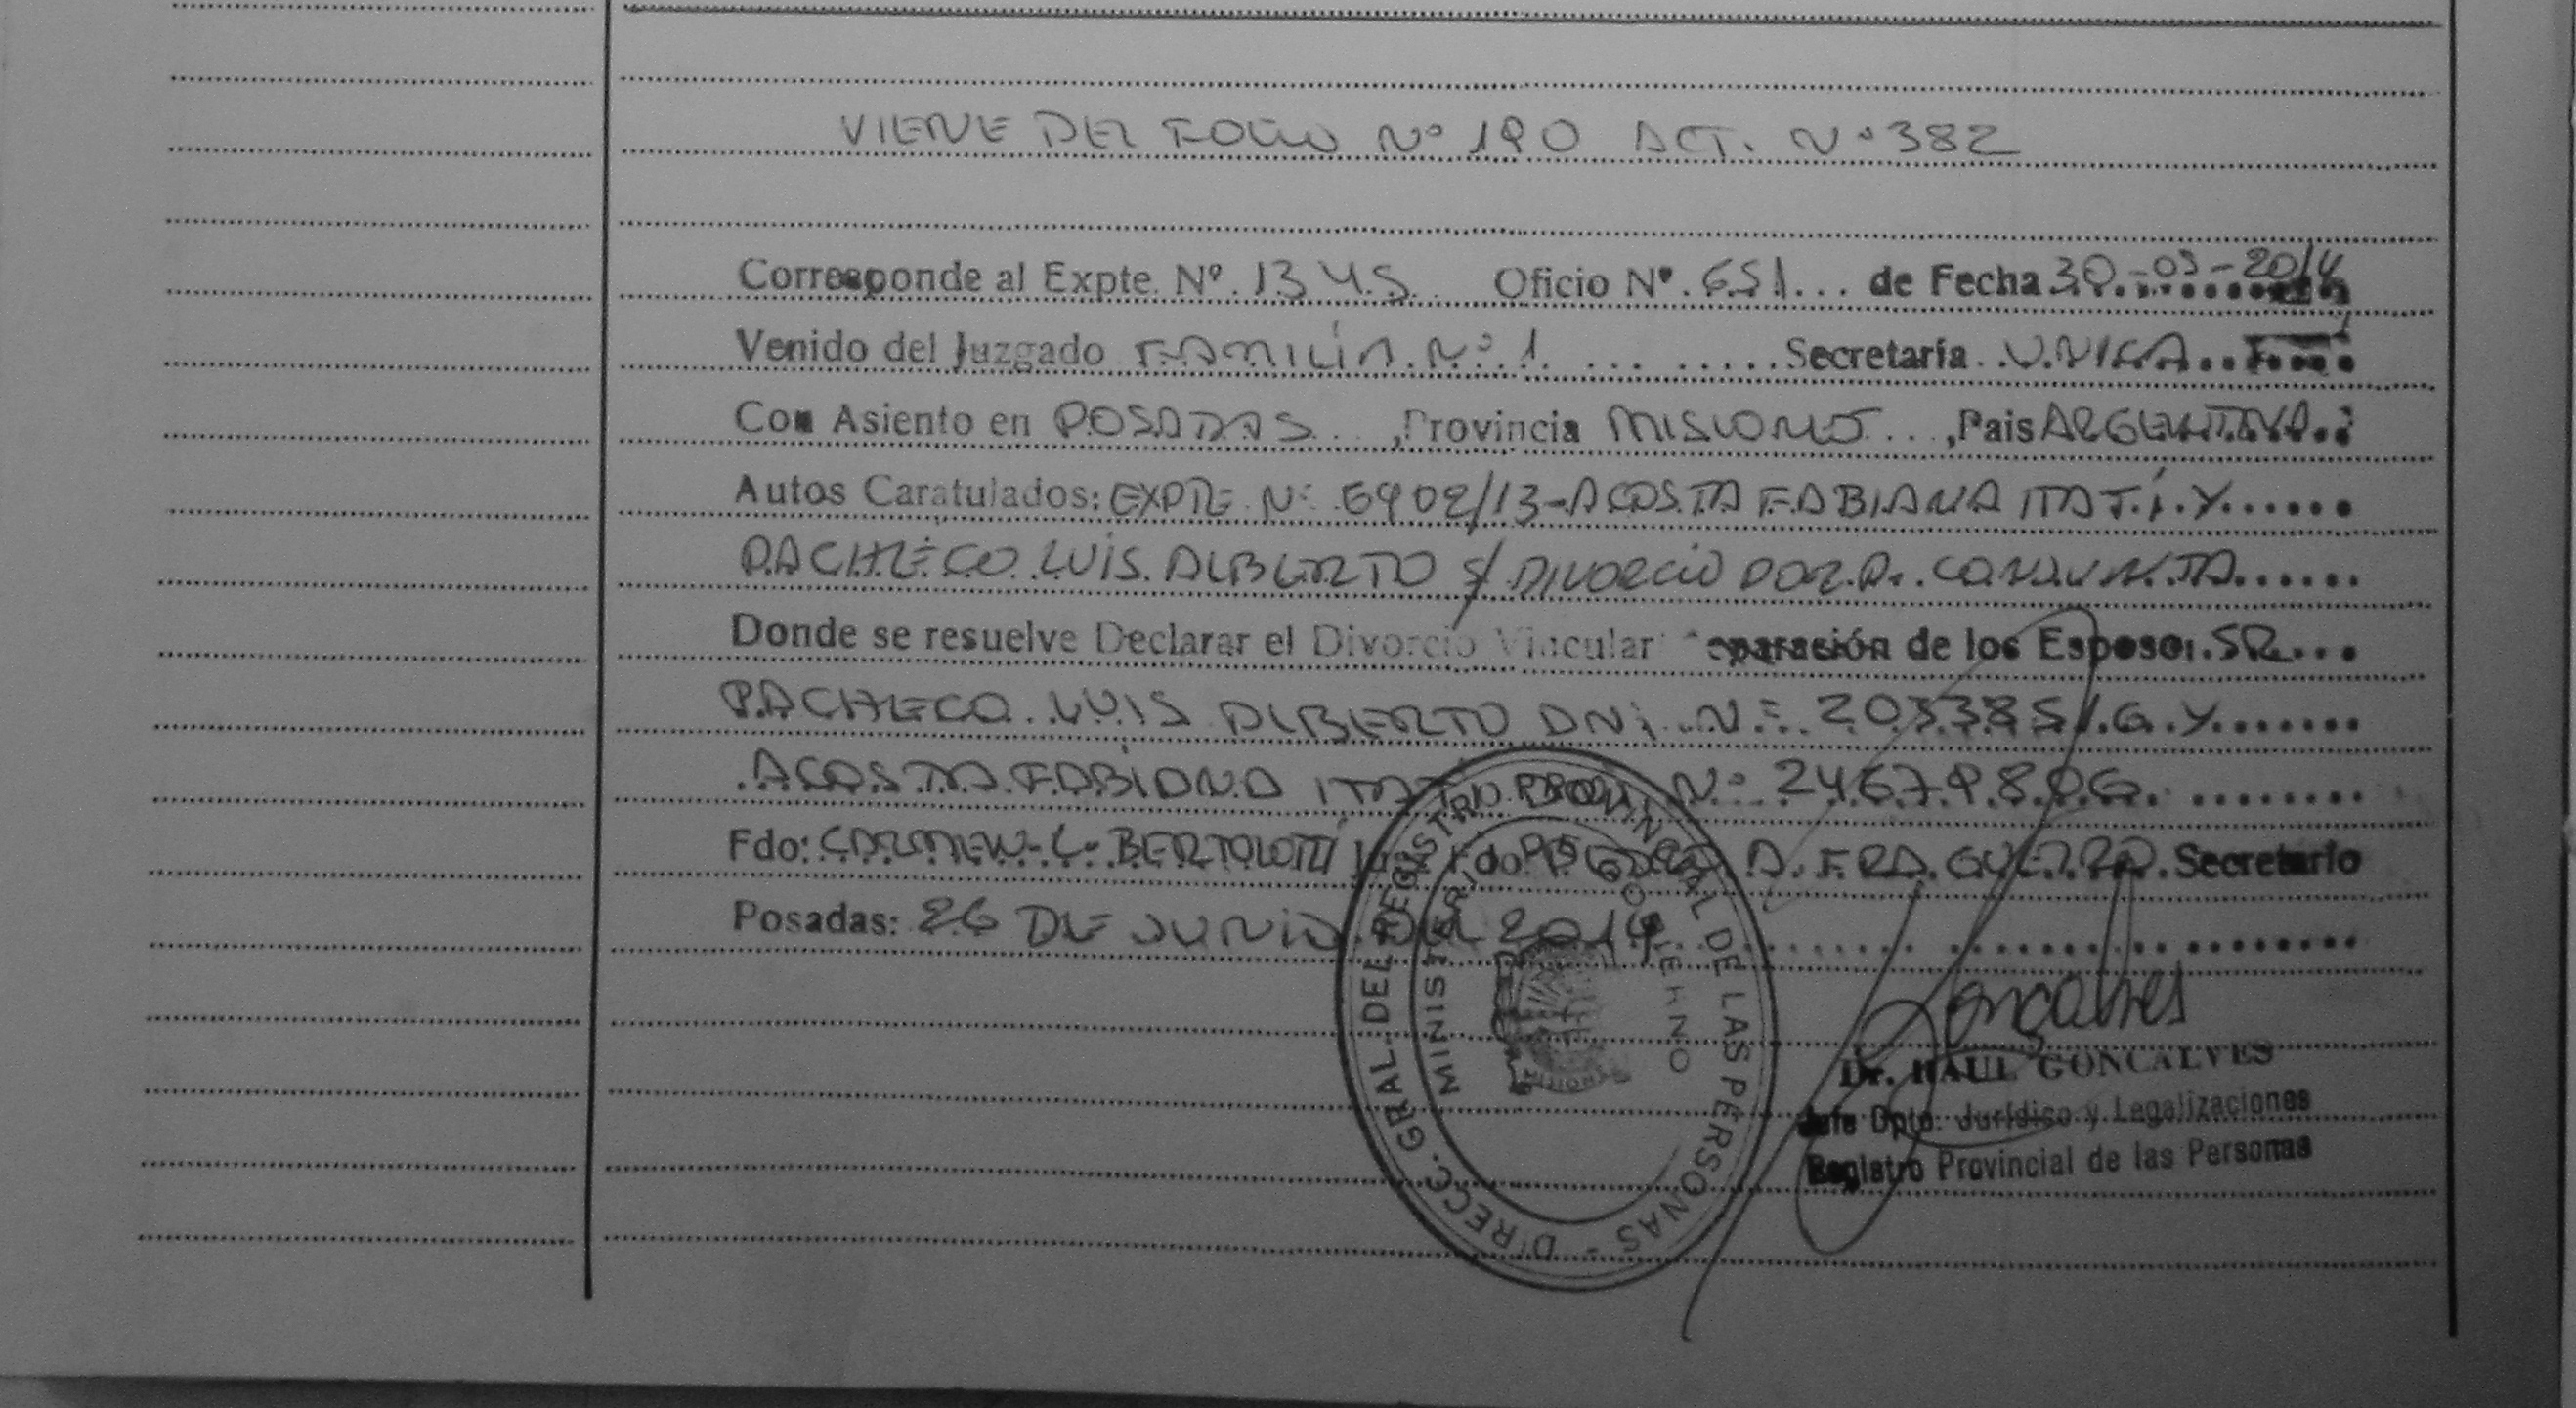 VIENE DEL FOLIO Nº 190 ACT. Nº 382
Corresponde al Expte. Nº. 1345. Oficio Nº. 651... de Fecha 30-05-2014
Venido del Juzgado FAMILIA Nº 1 ........ Secretaría. UNICA..
Con Asiento en POSADAS...,Provincia MISIONES...,Pais ARGENTINA..
Autos Caratulados: EXPTE Nº 6902/13-ACOSTA FABIANA ITATÍ.Y......
PACHECO LUIS ALBERTO S/ DIVORCIO POR P. CONJUNTA......
Donde se resuelve Declarar el Divorcio Vincular Separación de los Esposos. SR...
PACHECO LUIS ALBERTO DNI Nº 20338516 Y.......
ACOSTA FABIANA Nº 24679806 ........
Fdo: CARMEN C. BERTOLOTTI Fdo. GUERRA. Secretario
Posadas: 26 DE JUNIO DEL 2014
DIRECC. GRAL. DEL REGISTRO PROVINCIAL DE LAS PERSONAS -
MINISTERIO DE GOBIERNO
MISIONES
Goncalves
Dr. RAUL GONCALVES
Jefe Dpto. Jurídico y Legalizaciones
Registro Provincial de las Personas